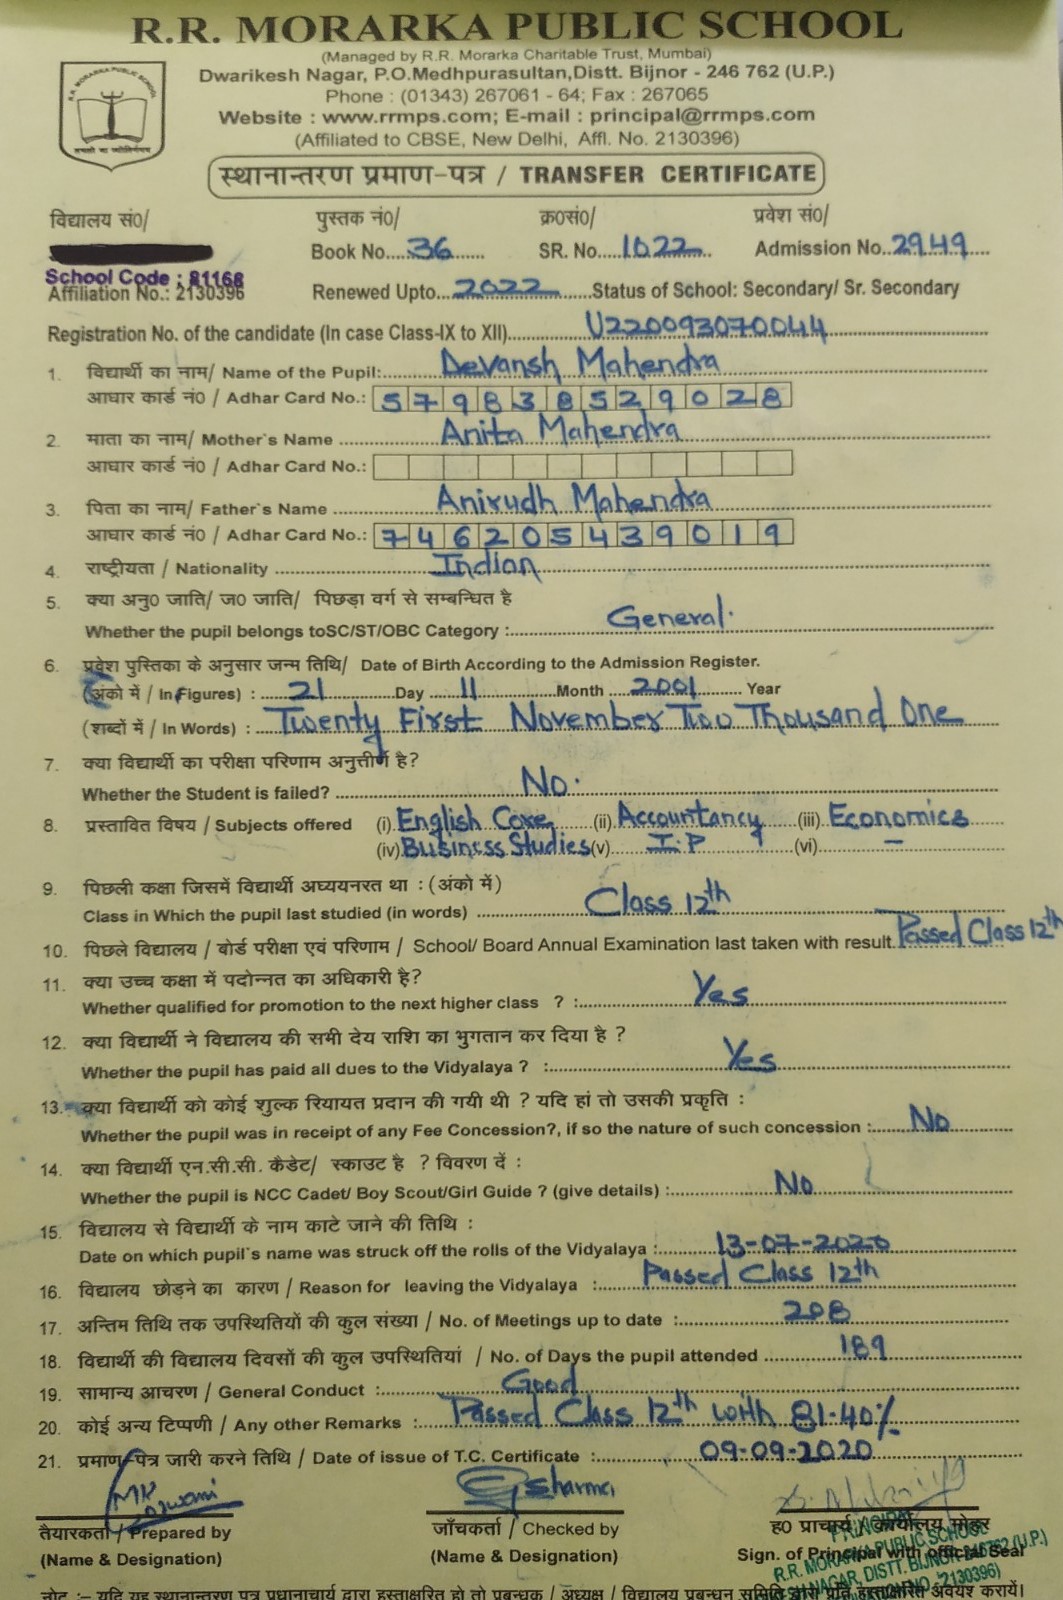 R.R. MORARKA PUBLIC SCHOOL
(Managed by R.R. Morarka Charitable Trust, Mumbai)
Dwarikesh Nagar, P.O.Medhpurasultan,Distt. Bijnor - 246 762 (U.P.)
Phone : (01343) 267061 - 64; Fax : 267065
Website : www.rrmps.com; E-mail : principal@rrmps.com
(Affiliated to CBSE, New Delhi, Affl. No. 2130396)
R.R. MORARKA PUBLIC SCHOOL
स्थानान्तरण प्रमाण-पत्र / TRANSFER CERTIFICATE
विद्यालय सं0/ पुस्तक नं0/ क्र0सं0/ प्रवेश सं0/
Book No. 36 SR. No. 1022 Admission No. 2949
School Code : 81168
Affiliation No.: 2130396 Renewed Upto 2022 Status of School: Secondary/ Sr. Secondary
Registration No. of the candidate (In case Class-IX to XII) U220093070044
1. विद्यार्थी का नाम/ Name of the Pupil: Devansh Mahendra
आधार कार्ड नं0 / Adhar Card No.: 579838529028
2. माता का नाम/ Mother`s Name Anita Mahendra
आधार कार्ड नं0 / Adhar Card No.:
3. पिता का नाम/ Father`s Name Anirudh Mahendra
आधार कार्ड नं0 / Adhar Card No.: 746205439019
4. राष्ट्रीयता / Nationality Indian
5. क्या अनु0 जाति/ ज0 जाति/ पिछड़ा वर्ग से सम्बन्धित है
Whether the pupil belongs toSC/ST/OBC Category : General.
6. प्रवेश पुस्तिका के अनुसार जन्म तिथि/ Date of Birth According to the Admission Register.
(अंको में / In Figures) : 21 Day 11 Month 2001 Year
(शब्दों में / In Words) : Twenty First November Two Thousand One
7. क्या विद्यार्थी का परीक्षा परिणाम अनुत्तीर्ण है?
Whether the Student is failed? No.
8. प्रस्तावित विषय / Subjects offered (i) English Core (ii) Accountancy (iii) Economics
(iv) Business Studies (v) I.P (vi) –
9. पिछली कक्षा जिसमें विद्यार्थी अध्ययनरत था : (अंको में)
Class in Which the pupil last studied (in words) Class 12th
10. पिछले विद्यालय / बोर्ड परीक्षा एवं परिणाम / School/ Board Annual Examination last taken with result. Passed Class 12th
11. क्या उच्च कक्षा में पदोन्नत का अधिकारी है?
Whether qualified for promotion to the next higher class ? : Yes
12. क्या विद्यार्थी ने विद्यालय की सभी देय राशि का भुगतान कर दिया है ?
Whether the pupil has paid all dues to the Vidyalaya ? : Yes
13. क्या विद्यार्थी को कोई शुल्क रियायत प्रदान की गयी थी ? यदि हां तो उसकी प्रकृति :
Whether the pupil was in receipt of any Fee Concession?, if so the nature of such concession : No
14. क्या विद्यार्थी एन.सी.सी. कैडेट/ स्काउट है ? विवरण दें :
Whether the pupil is NCC Cadet/ Boy Scout/Girl Guide ? (give details) : No
15. विद्यालय से विद्यार्थी के नाम काटे जाने की तिथि :
Date on which pupil`s name was struck off the rolls of the Vidyalaya : 13-07-2020
16. विद्यालय छोड़ने का कारण / Reason for leaving the Vidyalaya : Passed Class 12th
17. अन्तिम तिथि तक उपस्थितियों की कुल संख्या / No. of Meetings up to date : 208
18. विद्यार्थी की विद्यालय दिवसों की कुल उपस्थितियां / No. of Days the pupil attended 189
19. सामान्य आचरण / General Conduct : Good
20. कोई अन्य टिप्पणी / Any other Remarks : Passed Class 12th with 81.40%
21. प्रमाण-पत्र जारी करने तिथि / Date of issue of T.C. Certificate : 09-09-2020
GSharma
तैयारकर्ता / Prepared by जाँचकर्ता / Checked by ह0 प्राचार्य / कार्यालय मोहर
(Name & Designation) (Name & Designation) Sign. of Principal with official Seal
PRINCIPAL
R.R. MORARKA PUBLIC SCHOOL
NAGAR, DISTT. BIJNOR-246762 (U.P.)
NO. '2130396)
नोट :– यदि यह स्थानान्तरण पत्र प्रधानाचार्य द्वारा हस्ताक्षरित हो तो प्रबन्धक / अध्यक्ष / विद्यालय प्रबन्धन समिति द्वारा प्रति हस्ताक्षरित अवश्य करायें।